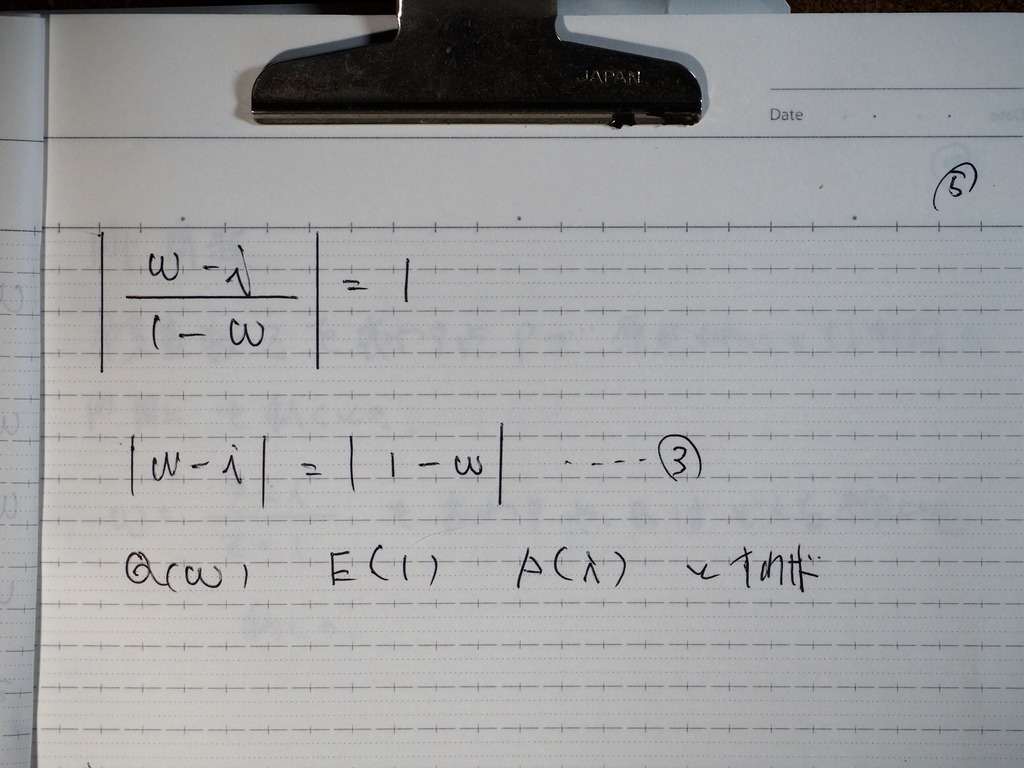 JAPAN
Date
⑤
| (w - i) / (1 - w) | = 1
|w - i| = | 1 - w | ····· ③
Q(w) E(1) A(i) とすれば